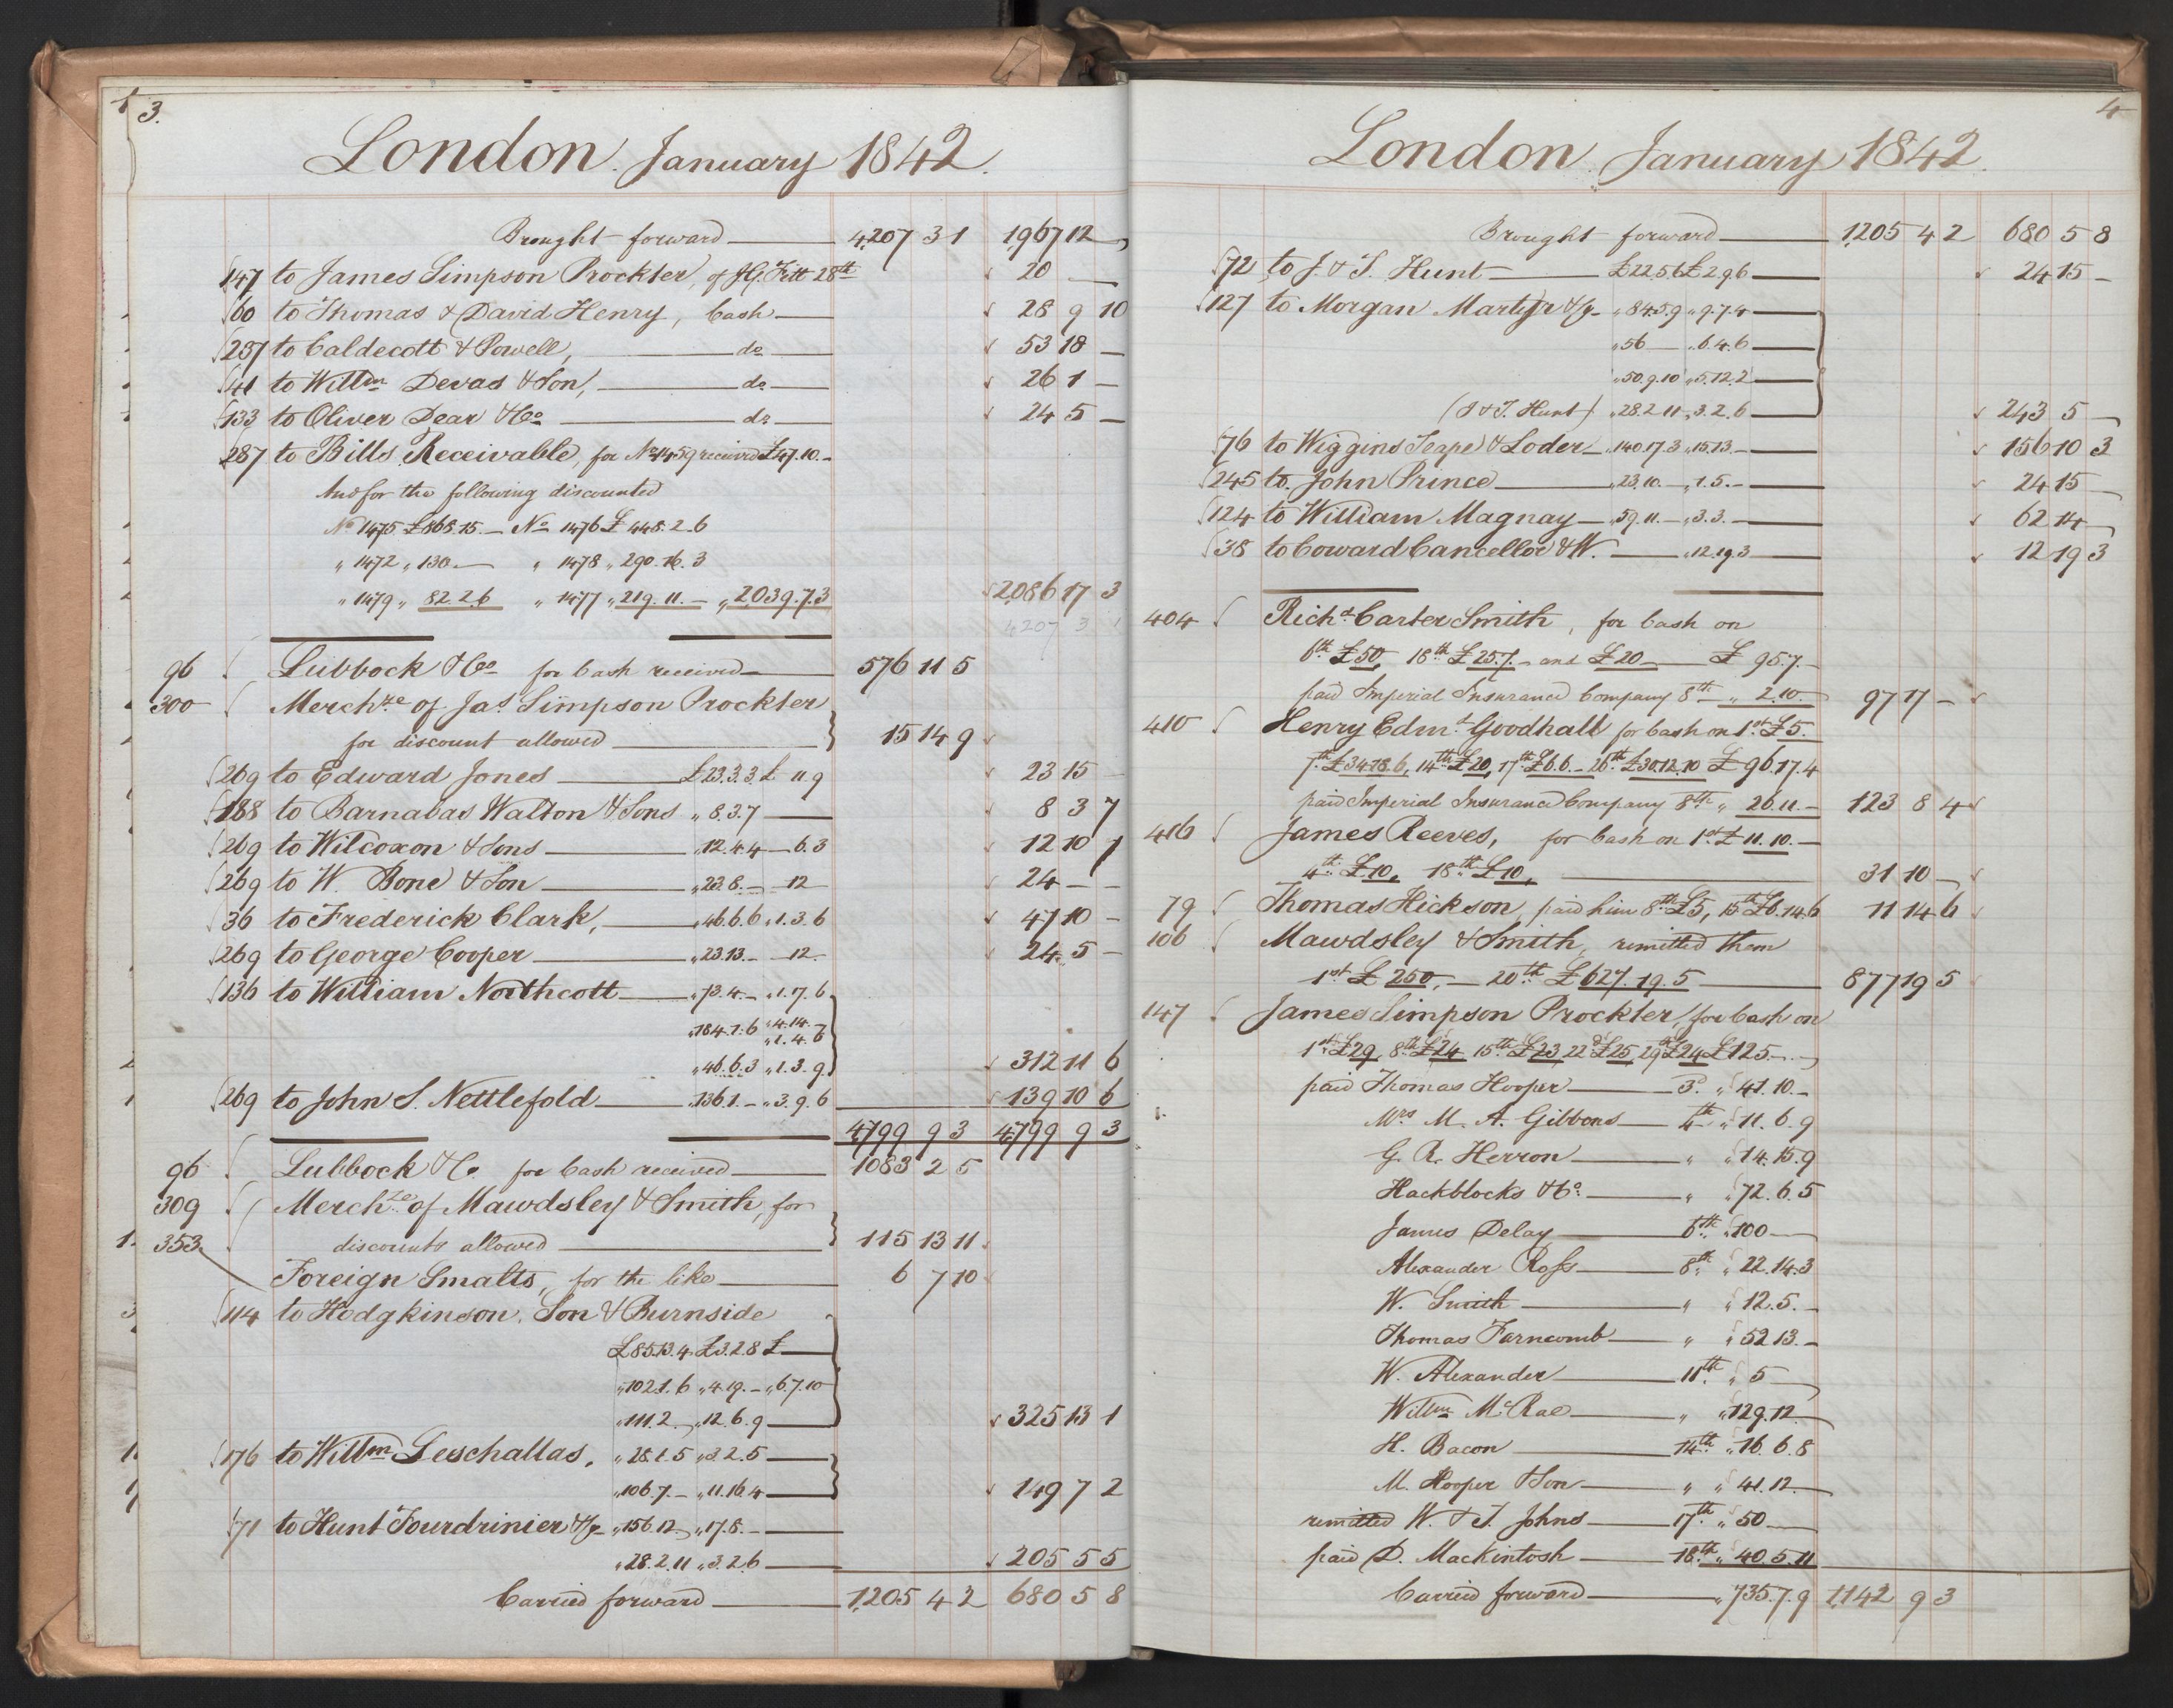 3.
London January 1842.
Brought forward 4207 3 1 1967 12 –
147 to James Simpson Prockter, of J.G. Fitt 28th 20 –
60 to Thomas & David Henry, Cash 28 9 10
237 to Caldecott & Powell, do 53 18 –
41 to Willm Devas & Son, do 26 1 –
133 to Oliver Dear & Co do 24 5 –
287 to Bills Receivable, for No 1459 received £47.10.–
And for the following discounted
No 1475 £868.15.– No 1476 £448.2.6
" 1472 " 130.– " 1478 " 290.16.3
" 1479 " 82.2.6 " 1477 " 219.11.– " 2039.7.3 2086 17 3
4207 3 1
96 Lubbock & Co for Cash received 576 11 5
300 Merchze of Jas Simpson Prockter
for discount allowed 15 14 9
269 to Edward Jones £23.3.3 £ 11.9 23 15 –
188 to Barnabas Walton & Sons " 8.3.7 8 3 7
269 to Wilcoxon & Sons " 12.4.4 – 6.3 12 10 7
269 to W. Bone & Son " 23.8.– – 12 – 24 – –
36 to Frederick Clark, " 46.6.6 " 1.3.6 47 10 –
269 to George Cooper " 23.13.– – 12.– 24 5 –
136 to William Northcott " 73.4.– " 1.17.6
" 184.1.6 " 4.14.–
" 1.4.6
" 46.6.3 " 1.3.9 312 11 6
269 to John S. Nettlefold " 136.1.– " 3.9.6 139 10 6
4799 9 3 4799 9 3
96 Lubbock & Co. for Cash received 1083 2 5
309 Merchze of Mawdsley & Smith, for
353 discounts allowed 115 13 11
Foreign Smalts, for the like 6 7 10
114 to Hodgkinson, Son & Burnside
£85.13.4 £3.2.8 £ –
" 102.1.6 " 4.19.– " 6.7.10
" 111.2.– " 12.6.9 325 13 1
176 to Willm Leschallas, " 28.1.5 " 3.2.5
" 106.7.– " 11.16.4 149 7 2
71 to Hunt Fourdrinier &c " 156.12.– " 17.8.–
" 28.2.11 " 3.2.6 205 5 5
Carried forward 1205 4 2 680 5 8
4
London January 1842.
Brought forward 1205 4 2 680 5 8
72 to J. & T. Hunt £22.5.6 £2.9.6 24 15 –
127 to Morgan Martyr &c " 84.5.9 " 9.7.4
" 56 – " 6.4.6
" 50.9.10 " 5.12.2
(J & T. Hunt) " 28.2.11 " 3.2.6 243 5 –
76 to Wiggins Teape & Loder " 140.17.3 " 15.13.– 156 10 3
245 to John Prince " 23.10.– " 1.5.– 24 15 –
124 to William Magnay " 59.11.– " 3.3.– 62 14 –
38 to Coward Cancellor & W. " 12.19.3 12 19 3
404 Richd Carter Smith, for Cash on
6th £50, 18th £25.7.– and £20.– £ 95.7.–
paid Imperial Insurance Company 8th " 2.10.– 97 17 –
410 Henry Edmd Goodhall for Cash on 1st £5.
7th £34.18.6, 14th £20, 17th £6.6.– 26th £30.12.10 £96.17.4
paid Imperial Insurance Company 8th " 26.11.– 123 8 4
416 James Reeves, for Cash on 1st £11.10.–
4th £10, 18th £10, 31 10 –
79 Thomas Hickson, paid him 8th £5, 15th £6.14.6 11 14 6
106 Mawdsley & Smith, remitted them
1st £250,– 20th £627.19.5 877 19 5
147 James Simpson Prockter, for Cash on
1st £29, 8th £24 15th £23 22d £25 29th £24 £125.–.–
paid Thomas Hooper 3d " 41.10.–
Mrs M. A. Gibbons 4th " 11.6.9
G. R. Herron " " 14.15.9
Hackblocks & Co " " 72.6.5
James Delay 6th " 100 –
Alexander Ross 8th " 22.14.3
W. Smith " " 12.5.–
Thomas Farncomb " " 52.13.–
W. Alexander 11th " 5 –
Willm McRae " " 129.12.–
H. Bacon 14th " 16.6.8
M. Hooper & Son " " 41.12.–
remitted W. & J. Johns 17th " 50 –
paid D. Mackintosh 18th " 40.5.11
Carried forward " 735.7.9 1142 9 3